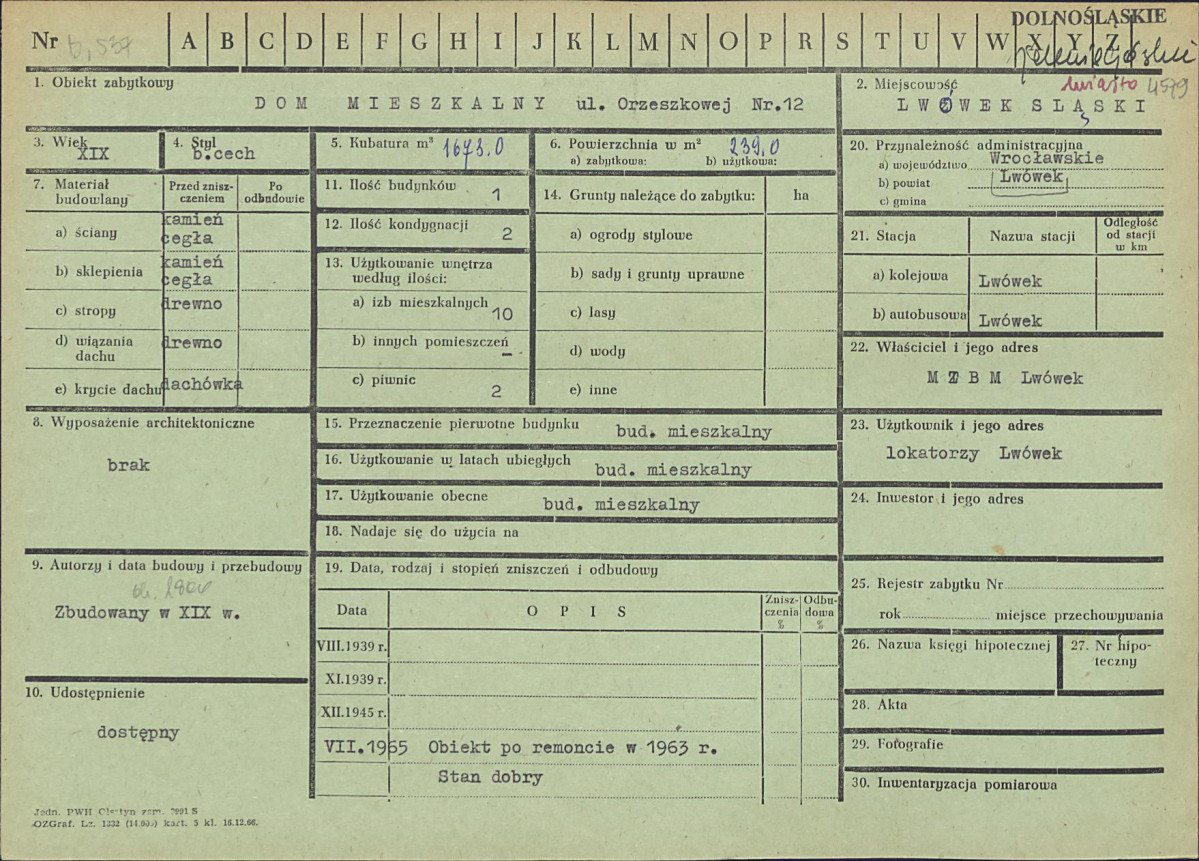 DOLNOŚLĄSKIE
Nr A B C D E F G H I J K L M N O P R S T U V W X Y Z
miasto 4579
1. Obiekt zabytkowy
DOM MIESZKALNY ul. Orzeszkowej Nr.12
2. Miejscowość
LWÓWEK SLĄSKI
3. Wiek
XIX
4. Styl
b.cech
5. Kubatura m³ 1673.0
6. Powierzchnia w m² 239,0
a) zabytkowa: b) użytkowa:
7. Materiał budowlany
Przed zniszczeniem
Po odbudowie
a) ściany
kamień
cegła
b) sklepienia
kamień
cegła
c) stropy
drewno
d) wiązania dachu
drewno
e) krycie dachu
dachówka
8. Wyposażenie architektoniczne
brak
9. Autorzy i data budowy i przebudowy
Zbudowany w XIX w.
10. Udostępnienie
dostępny
11. Ilość budynków
1
12. Ilość kondygnacji
2
13. Użytkowanie wnętrza
według ilości:
a) izb mieszkalnych
10
b) innych pomieszczeń
–
c) piwnic
2
14. Grunty należące do zabytku: ha
a) ogrody stylowe
b) sady i grunty uprawne
c) lasy
d) wody
e) inne
15. Przeznaczenie pierwotne budynku bud. mieszkalny
16. Użytkowanie w latach ubiegłych bud. mieszkalny
17. Użytkowanie obecne bud. mieszkalny
18. Nadaje się do użycia na
19. Data, rodzaj i stopień zniszczeń i odbudowy
Data OPIS Zniszczenia % Odbudowa %
VIII.1939 r.
XI.1939 r.
XII.1945 r.
VII.1965 Obiekt po remoncie w 1963 r.
Stan dobry
20. Przynależność administracyjna
a) województwo Wrocławskie
b) powiat Lwówek
c) gmina
21. Stacja Nazwa stacji Odległość od stacji w km
a) kolejowa Lwówek
b) autobusowa Lwówek
22. Właściciel i jego adres
M Z B M Lwówek
23. Użytkownik i jego adres
lokatorzy Lwówek
24. Inwestor i jego adres
25. Rejestr zabytku Nr
rok miejsce przechowywania
26. Nazwa księgi hipotecznej
27. Nr hipoteczny
28. Akta
29. Fotografie
30. Inwentaryzacja pomiarowa
OZGraf. Lz. 1332 kart. 5 kl. 16.12.66.